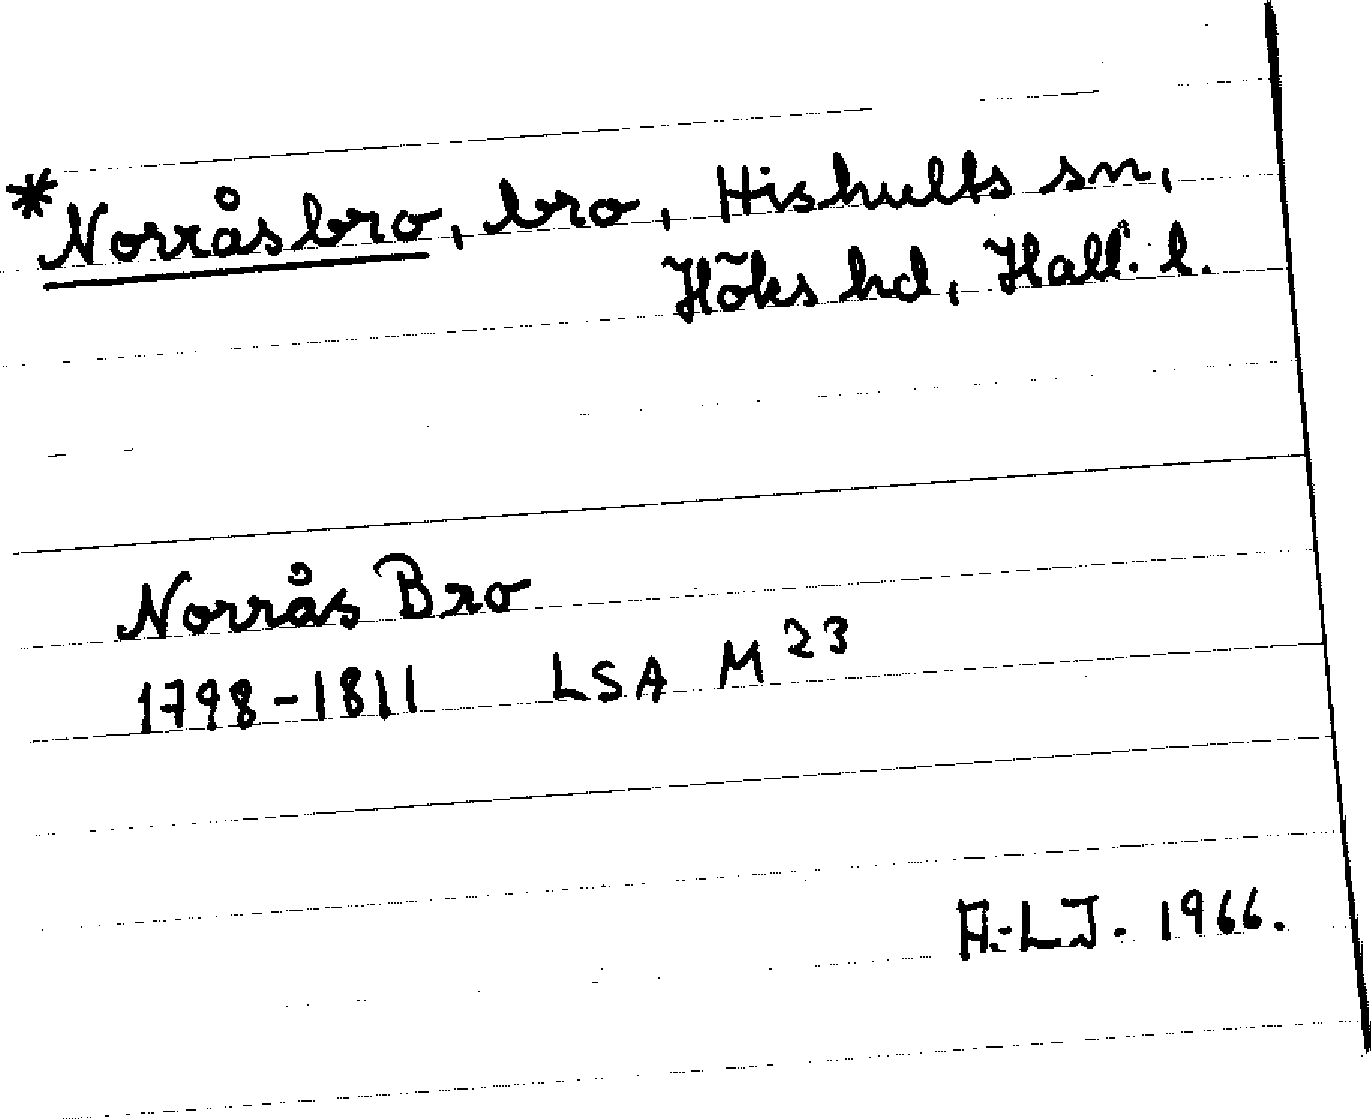 *Norråsbro, bro, Hishults sn,
Höks hd, Hall. l.
Norrås Bro
1798-1811 LSA M23
A.-L.J. 1966.